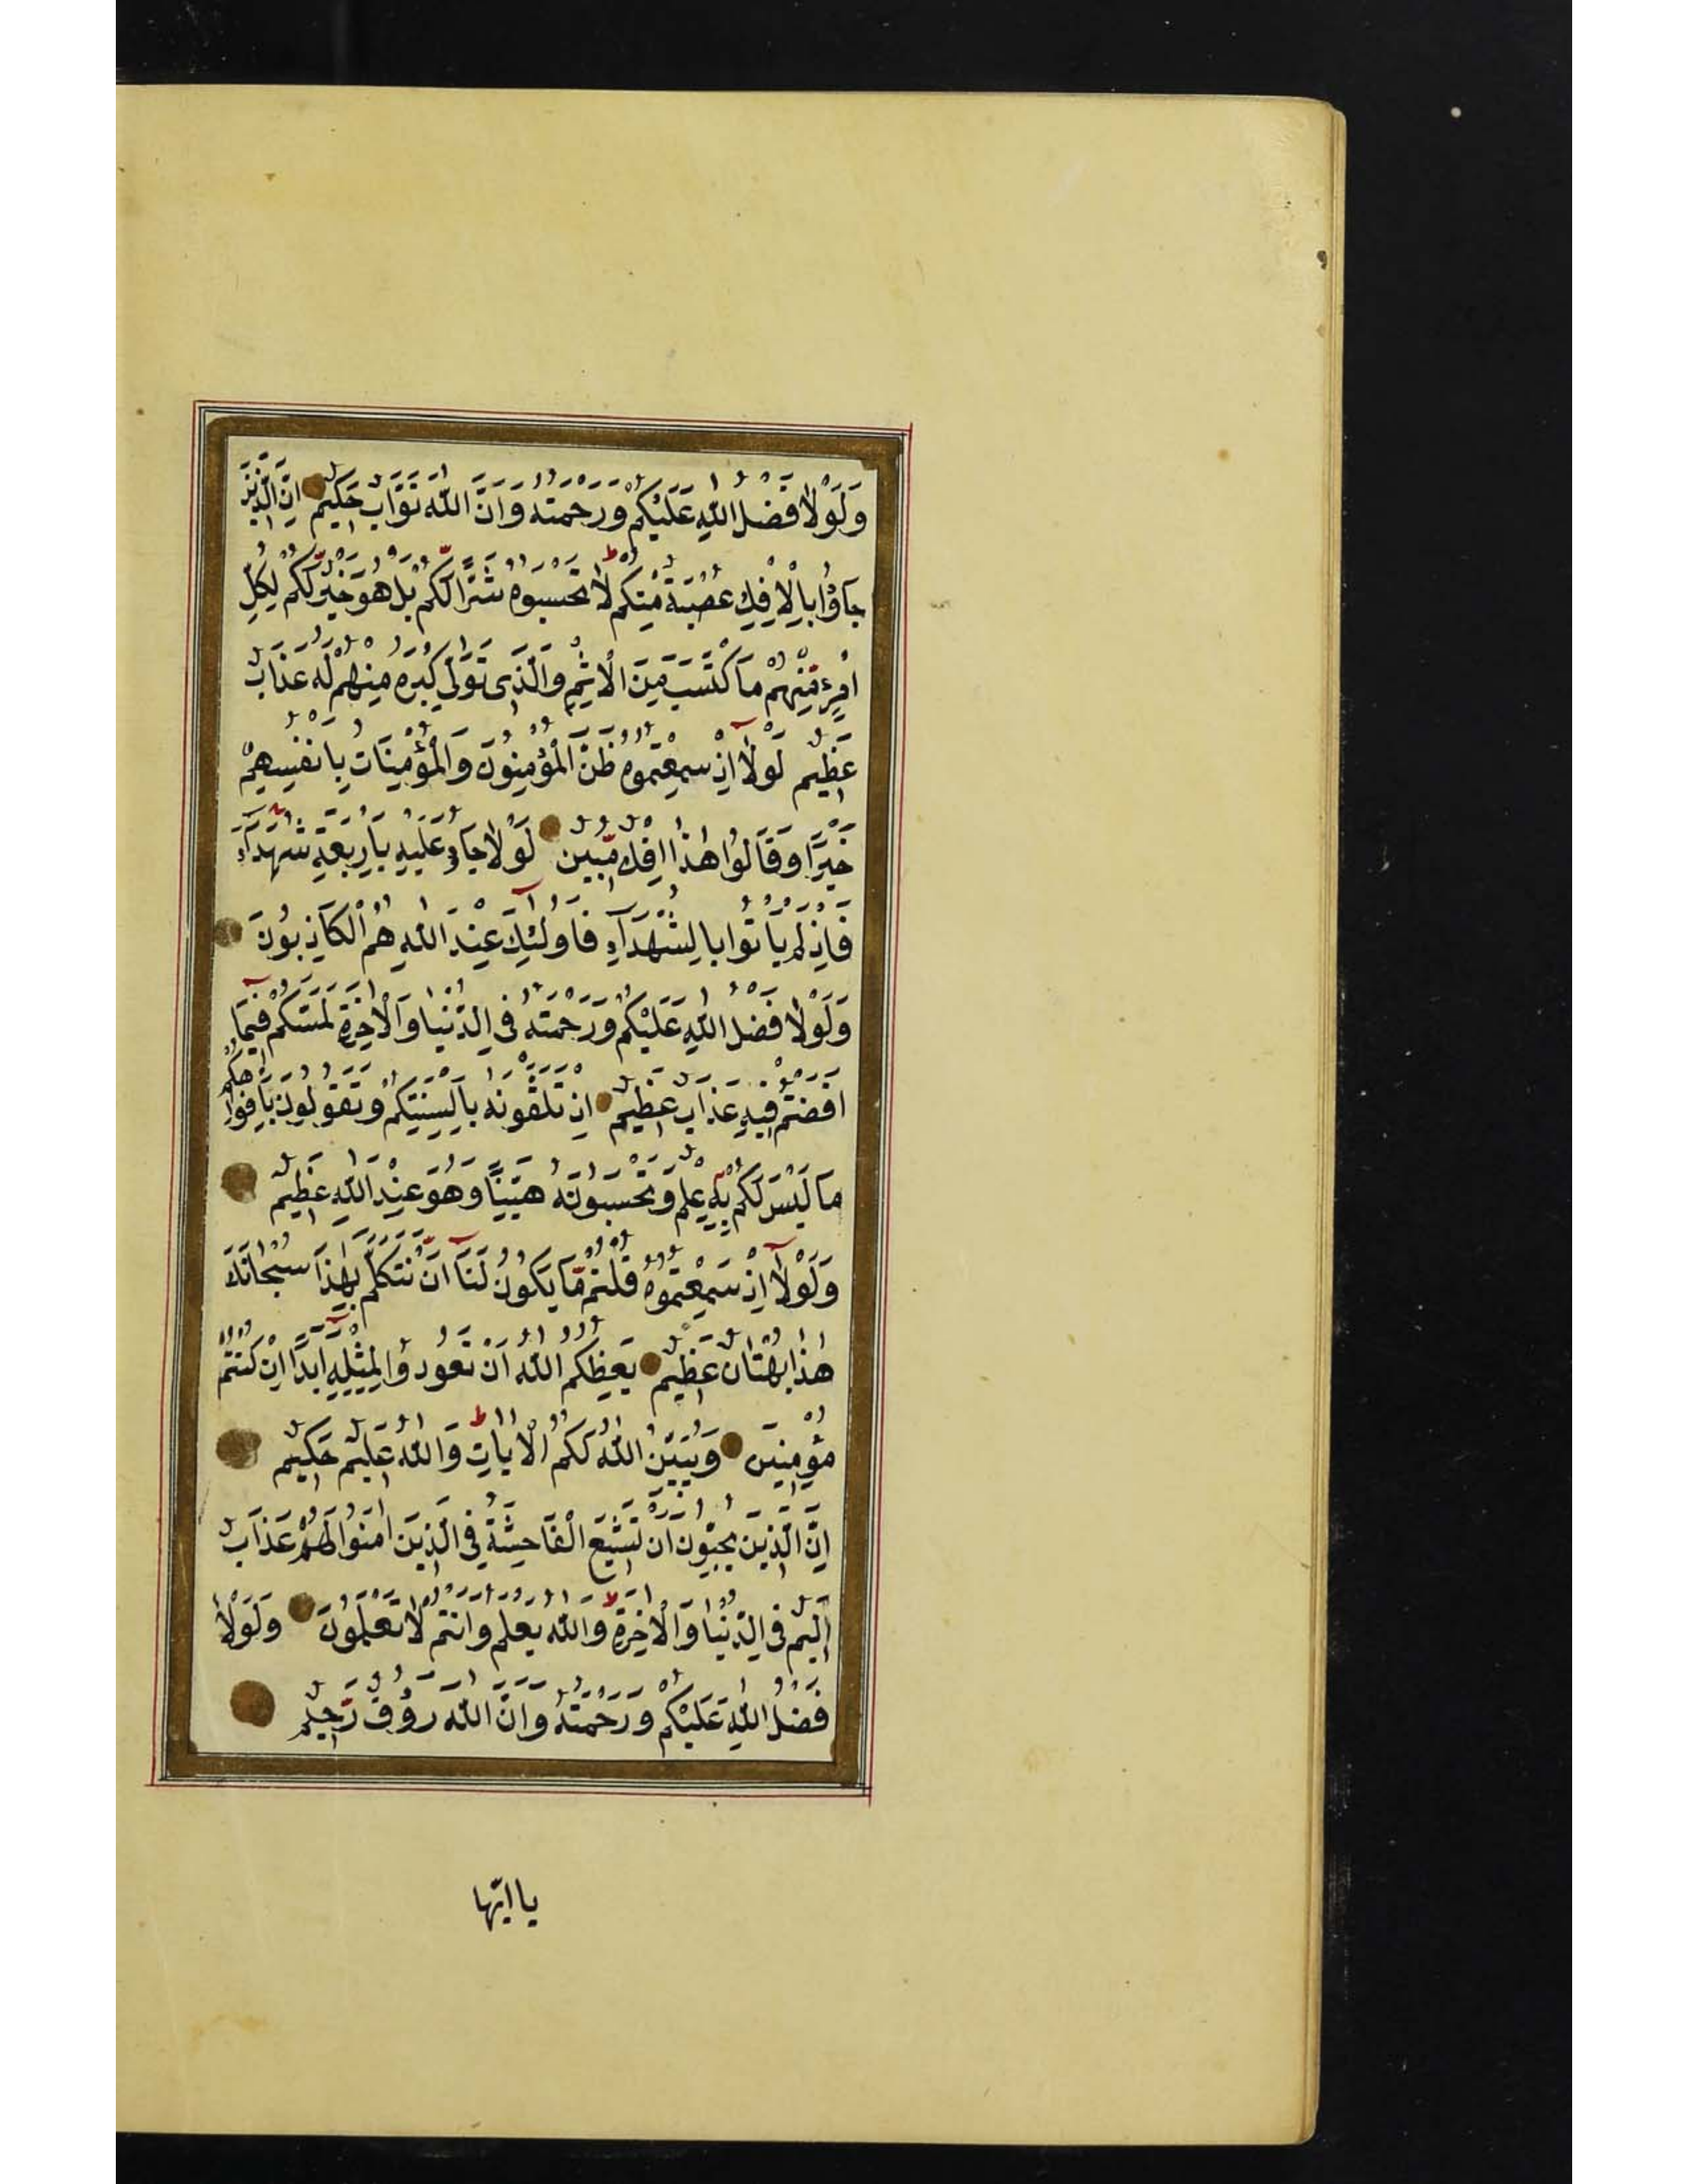 وَلَوْلَا فَضْلُ اللّٰهِ عَلَيْكُمْ وَرَحْمَتُهُ وَاَنَّ اللّٰهَ تَوَّابٌ حَكِيمٌ اِنَّ الَّذِينَ
جَآؤُا بِالْاِفْكِ عُصْبَةٌ مِنْكُمْ لَا تَحْسَبُوهُ شَرًّا لَكُمْ بَلْ هُوَ خَيْرٌ لَكُمْ لِكُلِّ
امْرِئٍ مِنْهُمْ مَا كْتَسَبَ مِنَ الْاِثْمِ وَالَّذِى تَوَلّٰى كِبْرَهُ مِنْهُمْ لَهُ عَذَابٌ
عَظِيمٌ لَوْلَآ اِذْ سَمِعْتُمُوهُ ظَنَّ الْمُؤْمِنُونَ وَالْمُؤْمِنَاتُ بِاَنْفُسِهِمْ
خَيْرًا وَقَالُوا هٰذَا اِفْكٌ مُبِينٌ لَوْلَا جَاؤُ عَلَيْهِ بِاَرْبَعَةِ شُهَدَآءَ
فَاِذْ لَمْ يَاْتُوا بِالشُّهَدَآءِ فَاُولٰٓئِكَ عِنْدَ اللّٰهِ هُمُ الْكَاذِبُونَ
وَلَوْلَا فَضْلُ اللّٰهِ عَلَيْكُمْ وَرَحْمَتُهُ فِى الدُّنْيَا وَالْاٰخِرَةِ لَمَسَّكُمْ فِيمَآ
اَفَضْتُمْ فِيهِ عَذَابٌ عَظِيمٌ اِذْ تَلَقَّوْنَهُ بِاَلْسِنَتِكُمْ وَتَقُولُونَ بِاَفْوَاهِكُمْ
مَا لَيْسَ لَكُمْ بِهِ عِلْمٌ وَتَحْسَبُونَهُ هَيِّنًا وَهُوَ عِنْدَ اللّٰهِ عَظِيمٌ
وَلَوْلَآ اِذْ سَمِعْتُمُوهُ قُلْتُمْ مَا يَكُونُ لَنَآ اَنْ نَتَكَلَّمَ بِهٰذَا سُبْحَانَكَ
هٰذَا بُهْتَانٌ عَظِيمٌ يَعِظُكُمُ اللّٰهُ اَنْ تَعُودُوا لِمِثْلِهِ اَبَدًا اِنْ كُنْتُمْ
مُؤْمِنِينَ وَيُبَيِّنُ اللّٰهُ لَكُمُ الْاٰيَاتِ وَاللّٰهُ عَلِيمٌ حَكِيمٌ
اِنَّ الَّذِينَ يُحِبُّونَ اَنْ تَشِيعَ الْفَاحِشَةُ فِى الَّذِينَ اٰمَنُوا لَهُمْ عَذَابٌ
اَلِيمٌ فِى الدُّنْيَا وَالْاٰخِرَةِ وَاللّٰهُ يَعْلَمُ وَاَنْتُمْ لَا تَعْلَمُونَ وَلَوْلَا
فَضْلُ اللّٰهِ عَلَيْكُمْ وَرَحْمَتُهُ وَاَنَّ اللّٰهَ رَؤُفٌ رَحِيمٌ
يا ايّها